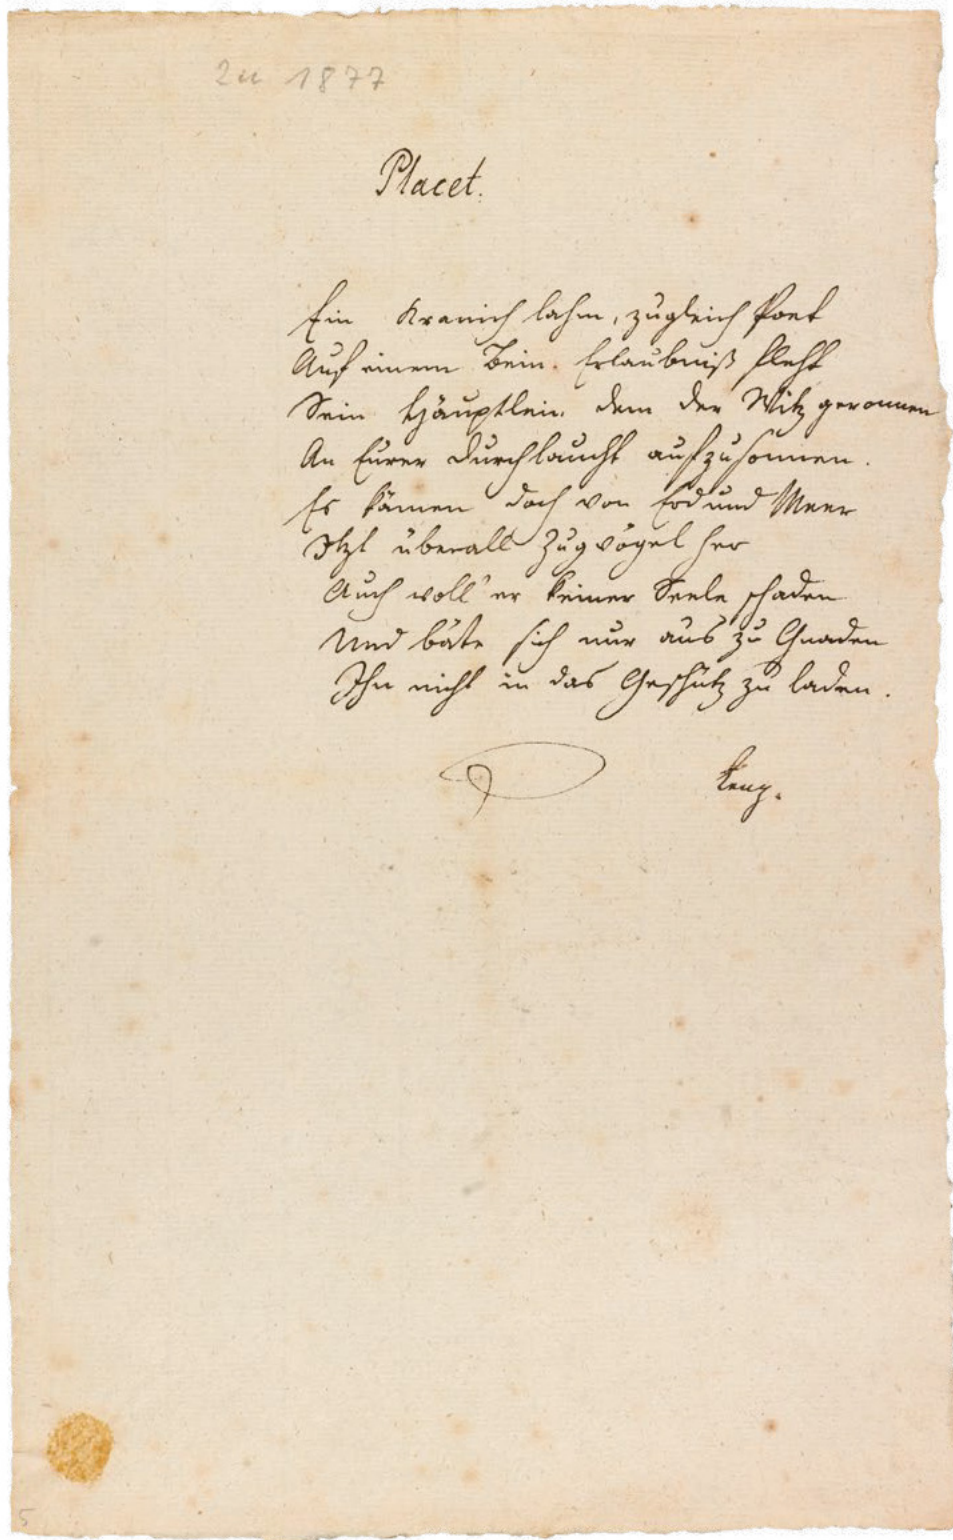 Zu 1877
Placet.
Ein Kranich lahm, zugleich Poet
Auf einem Bein. Erlaubniß fleht
Sein Häuptlein dem der Witz geronnen
An Eurer Durchlaucht aufzusonnen.
Es kämen doch von Erd und Meer
Itzt überall Zugvögel her
Auch woll' er keiner Seele schaden
Und bäte sich nur aus zu Gnaden
Ihn nicht in das Geschütz zu laden.
Lenz.
5